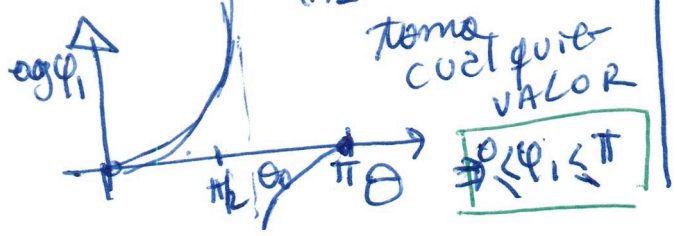 toma
cualquier
VALOR
φ₁
π/2 θ₀ π θ
⇒ 0 ≤ φ₁ ≤ π